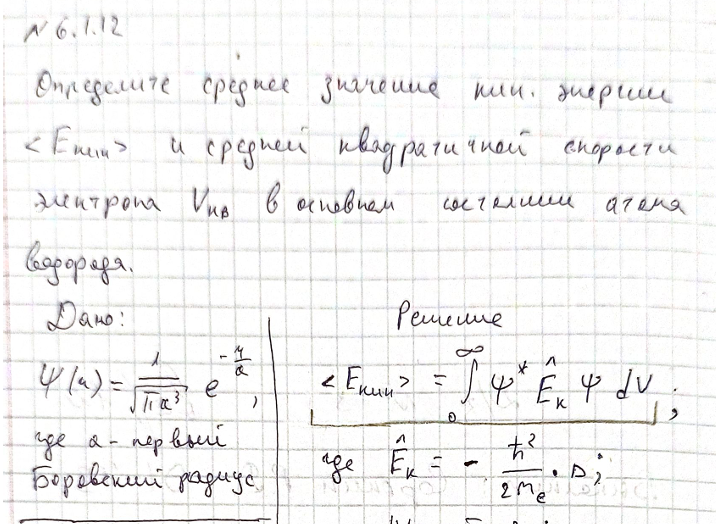 N 6.1.12
Определите среднее значение кин. энергии
<Eкин> и средней квадратичной скорости
электрона Vкв в основном состоянии атома
водорода.
Дано:
ψ(r) = 1/√(πa³) e^(-r/a),
где a - первый
Боровский радиус
Решение
<Eкин> = ∫₀^∞ ψ* Êк ψ dV ;
где Êк = - ħ²/2mₑ · Δ;